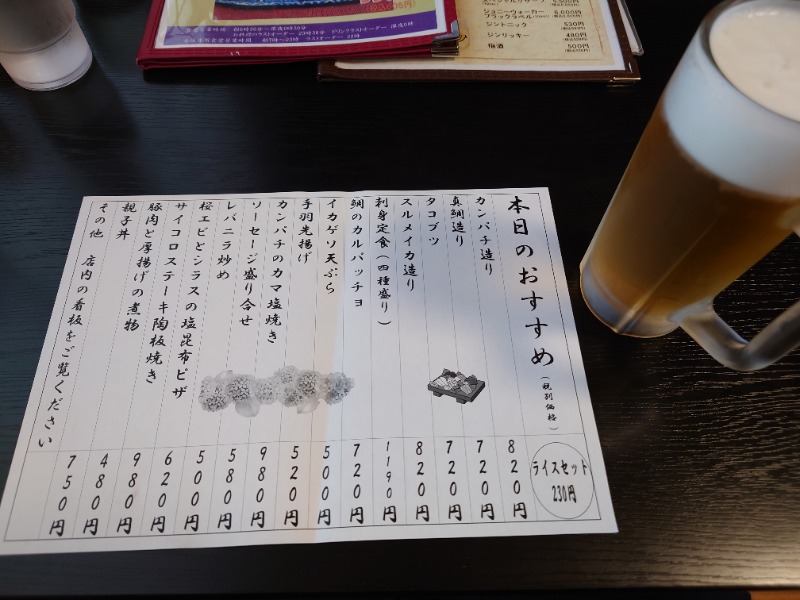 ジョニーウォーカー
ブラックラベル
6,000円
ジントニック 530円
ジンリッキー 480円
梅酒 500円
本日のおすすめ(税別価格)
ライスセット
230円
カンパチ造り 820円
真鯛造り 720円
タコブツ 720円
スルメイカ造り 820円
刺身定食(四種盛り) 1190円
鯛のカルパッチョ 720円
イカゲソ天ぷら 500円
手羽先揚げ 520円
カンパチのカマ塩焼き 980円
ソーセージ盛り合せ 580円
レバニラ炒め 500円
桜エビとシラスの塩昆布ピザ 620円
サイコロステーキ陶板焼き 980円
豚肉と厚揚げの煮物 480円
親子丼 750円
その他 店内の看板をご覧ください